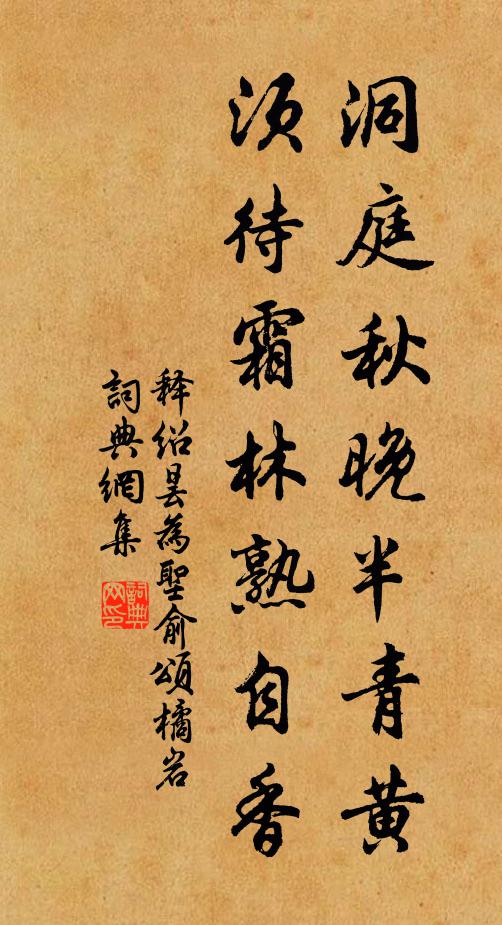 洞庭秋晚半青黄
须待霜林熟自香
释绍昙為聖俞頌橘岩
詞典網集
詞典网印